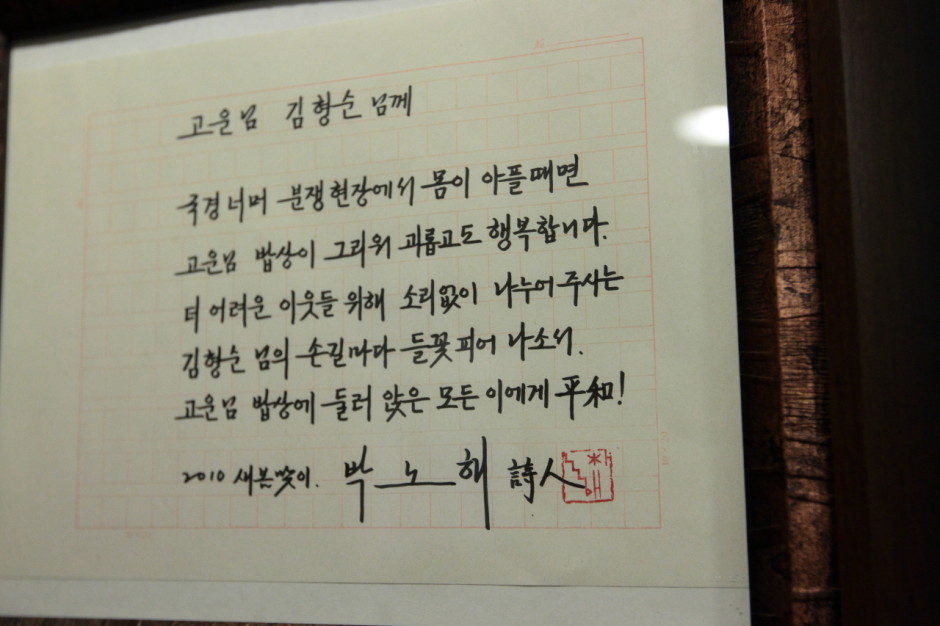 고운님 김형순 님께
국경너머 분쟁현장에서 몸이 아플때면
고운님 밥상이 그리워 괴롭고도 행복합니다.
더 어려운 이웃들 위해 소리없이 나누어 주시는
김형순 님의 손길마다 들꽃 피어 나소서.
고운님 밥상에 둘러 앉은 모든 이에게 平和!
2010 새봄맞이. 박노해 詩人